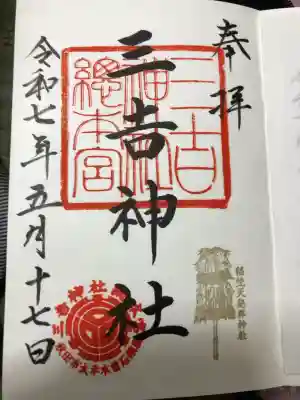 奉拝
三吉神社
三吉神社
總本宮
令和七年五月十七日